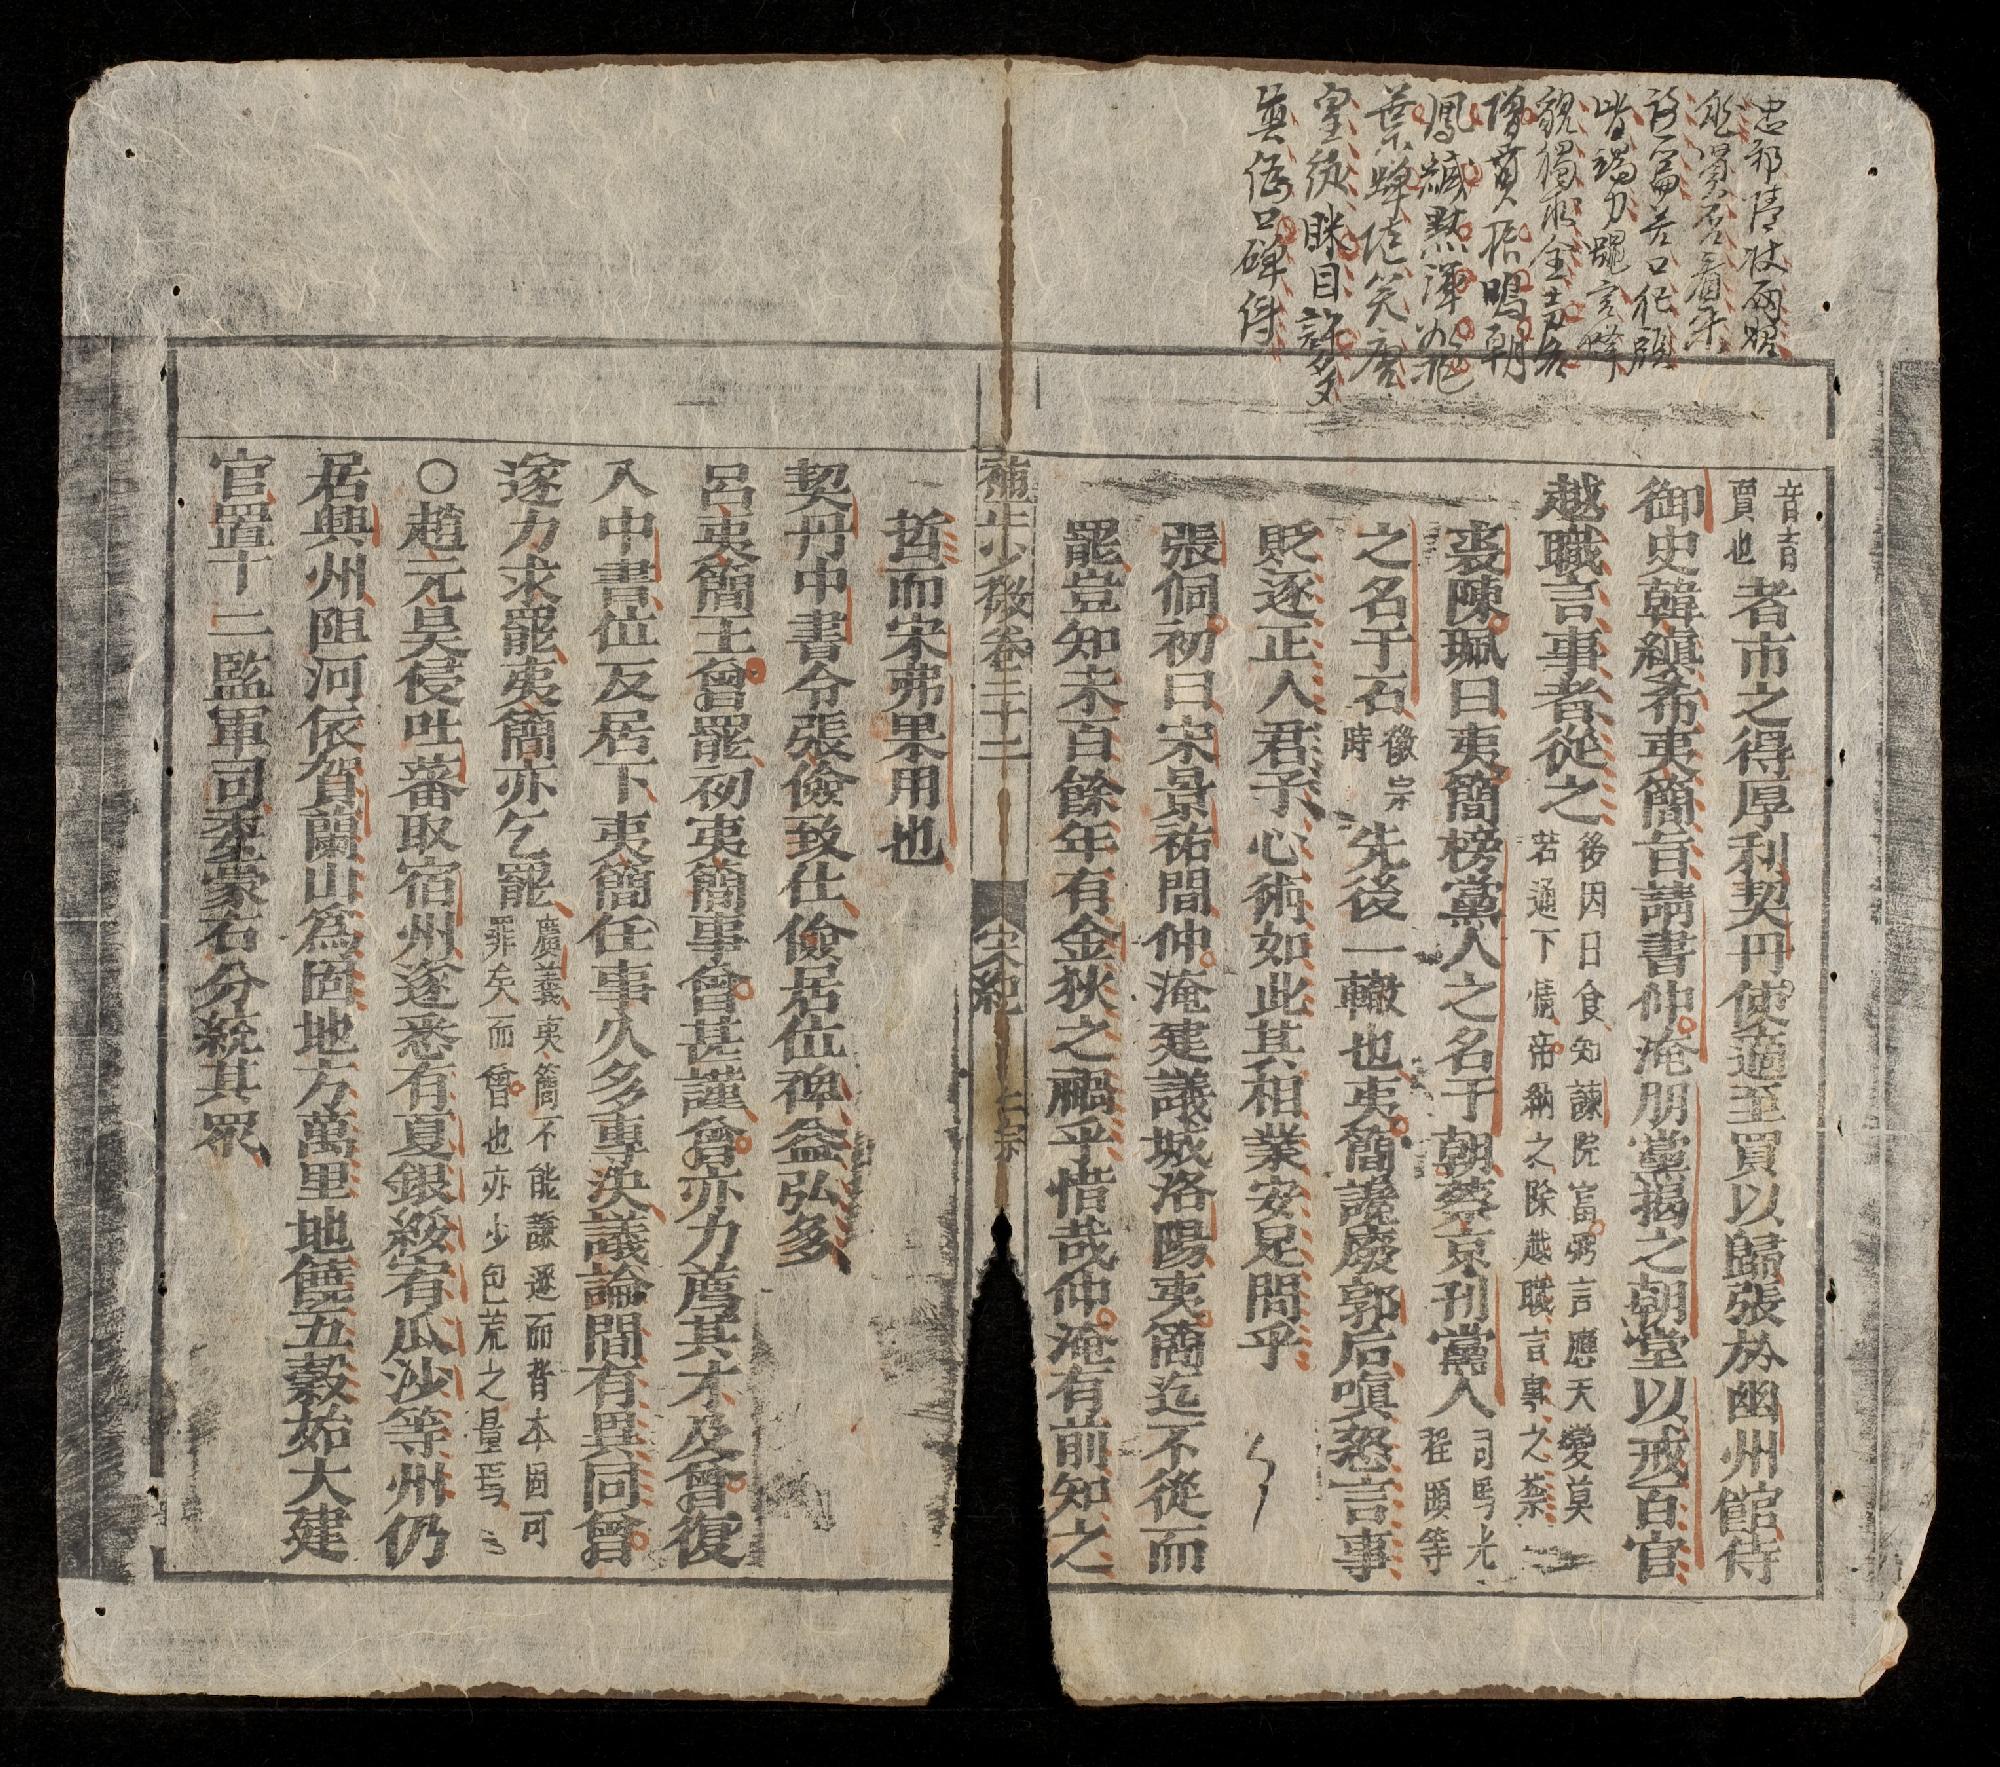 忠邪情狀兩
名看朱
這篇苦口
皆竭力

貌獨
貢振鳴朝
鳳緘默渾
葉蟬
皇從眯目許多
真偽口碑傳
音育
賈也
者市之得厚利契丹使適至買以歸張於幽州館侍
御史韓縝希夷簡旨請書仲淹朋黨揭之朝堂以戒百官
越職言事者從之
後因日食知諫院富弼言應天變莫
若通下情帝納之除越職言事之禁
裘陳珮曰夷簡榜黨人之名于朝蔡京刊黨人
司馬光
程頤等
之名于石
徽宗
時
先後一轍也夷簡讒廢郭后嗔怒言事
貶逐正人君子心術如此其相業安足問乎
張侗初曰宋景祐間仲淹建議城洛陽夷簡迄不從而
罷豈知未百餘年有金狄之禍乎惜哉仲淹有前知之
補少微卷三十二 宋紀 仁宗
哲而宋弗果用也
契丹中書令張儉致仕儉居位裨益弘多
呂夷簡王曾罷初夷簡事曾甚謹曾亦力薦其才及曾復
入中書位反居下夷簡任事久多專決議論間有異同曾
遂力求罷夷簡亦乞罷
廣義夷簡不能謙遜而背本固可
罪矣而曾也亦少包荒之量焉
○趙元昊侵吐蕃取宿州遂悉有夏銀綏宥瓜沙等州仍
居興州阻河依賀蘭山為固地方萬里地饒五穀始大建
官置十二監軍司委豪右分統其眾